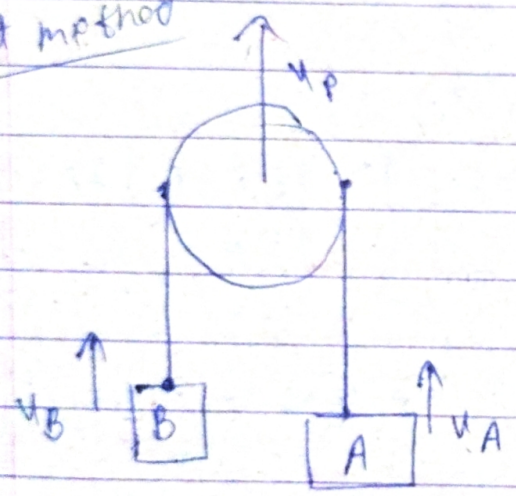 method
v_P
v_B
B
A
v_A